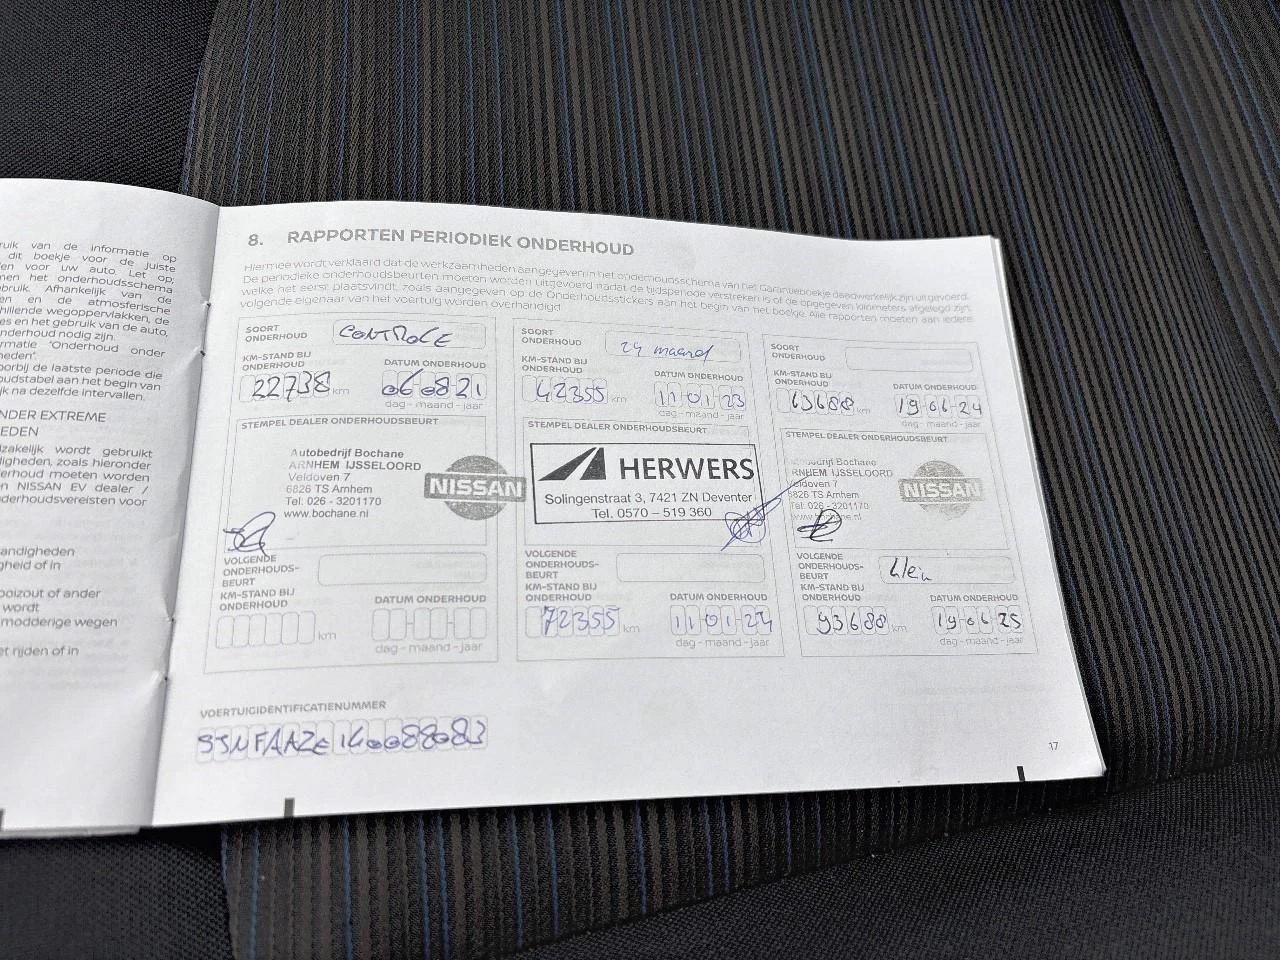 ruik van de informatie op
dit boekje voor de juiste
en voor uw auto. Let op,
nen het onderhoudsschema
bruik. Afhankelijk van de
en en de atmosferische
hillende wegoppervlakken, de
es en het gebruik van de auto,
nderhoud nodig zijn.
rmatie "Onderhoud onder
heden".
oorbij de laatste periode die
oudstabel aan het begin van
jk na dezelfde intervallen.
NDER EXTREME
EDEN
zakelijk wordt gebruikt
ligheden, zoals hieronder
erhoud moeten worden
en NISSAN EV dealer /
derhoudsvereisten voor
andigheden
gheid of in
ooizout of ander
wordt
modderige wegen
et rijden of in
8. RAPPORTEN PERIODIEK ONDERHOUD
Hiermee wordt verklaard dat de werkzaamheden aangegeven in het onderhoudsschema van het Garantieboekje daadwerkelijk zijn uitgevoerd.
De periodieke onderhoudsbeurten moeten worden uitgevoerd nadat de tijdsperiode verstreken is of de opgegeven kilometers afgelegd zijn,
welke het eerst plaatsvindt, zoals aangegeven op de Onderhoudsstickers aan het begin van het boekje. Alle rapporten moeten aan iedere
volgende eigenaar van het voertuig worden overhandigd
SOORT
ONDERHOUD CONTROLE
KM-STAND BIJ
ONDERHOUD DATUM ONDERHOUD
22738 km 060821
dag - maand - jaar
STEMPEL DEALER ONDERHOUDSBEURT
Autobedrijf Bochane
ARNHEM IJSSELOORD
Veldoven 7
6826 TS Arnhem
Tel: 026 - 3201170
www.bochane.nl
NISSAN
VOLGENDE
ONDERHOUDS-
BEURT
KM-STAND BIJ
ONDERHOUD DATUM ONDERHOUD
km
dag - maand - jaar
SOORT
ONDERHOUD 24 maand
KM-STAND BIJ
ONDERHOUD DATUM ONDERHOUD
42355 km 11-01-23
dag - maand - jaar
STEMPEL DEALER ONDERHOUDSBEURT
HERWERS
Solingenstraat 3, 7421 ZN Deventer
Tel. 0570 – 519 360
VOLGENDE
ONDERHOUDS-
BEURT
KM-STAND BIJ
ONDERHOUD DATUM ONDERHOUD
72355 km 11-01-24
dag - maand - jaar
SOORT
ONDERHOUD
KM-STAND BIJ
ONDERHOUD DATUM ONDERHOUD
63688 km 19-06-24
dag - maand - jaar
STEMPEL DEALER ONDERHOUDSBEURT
obedrijf Bochane
RNHEM IJSSELOORD
Veldoven 7
6826 TS Arnhem
Tel: 026 - 3201170
www.bochane.nl
NISSAN
VOLGENDE
ONDERHOUDS-
BEURT klein
KM-STAND BIJ
ONDERHOUD DATUM ONDERHOUD
93688 km 19-06-25
dag - maand - jaar
VOERTUIGIDENTIFICATIENUMMER
SJNFAAZE1U0088083
17